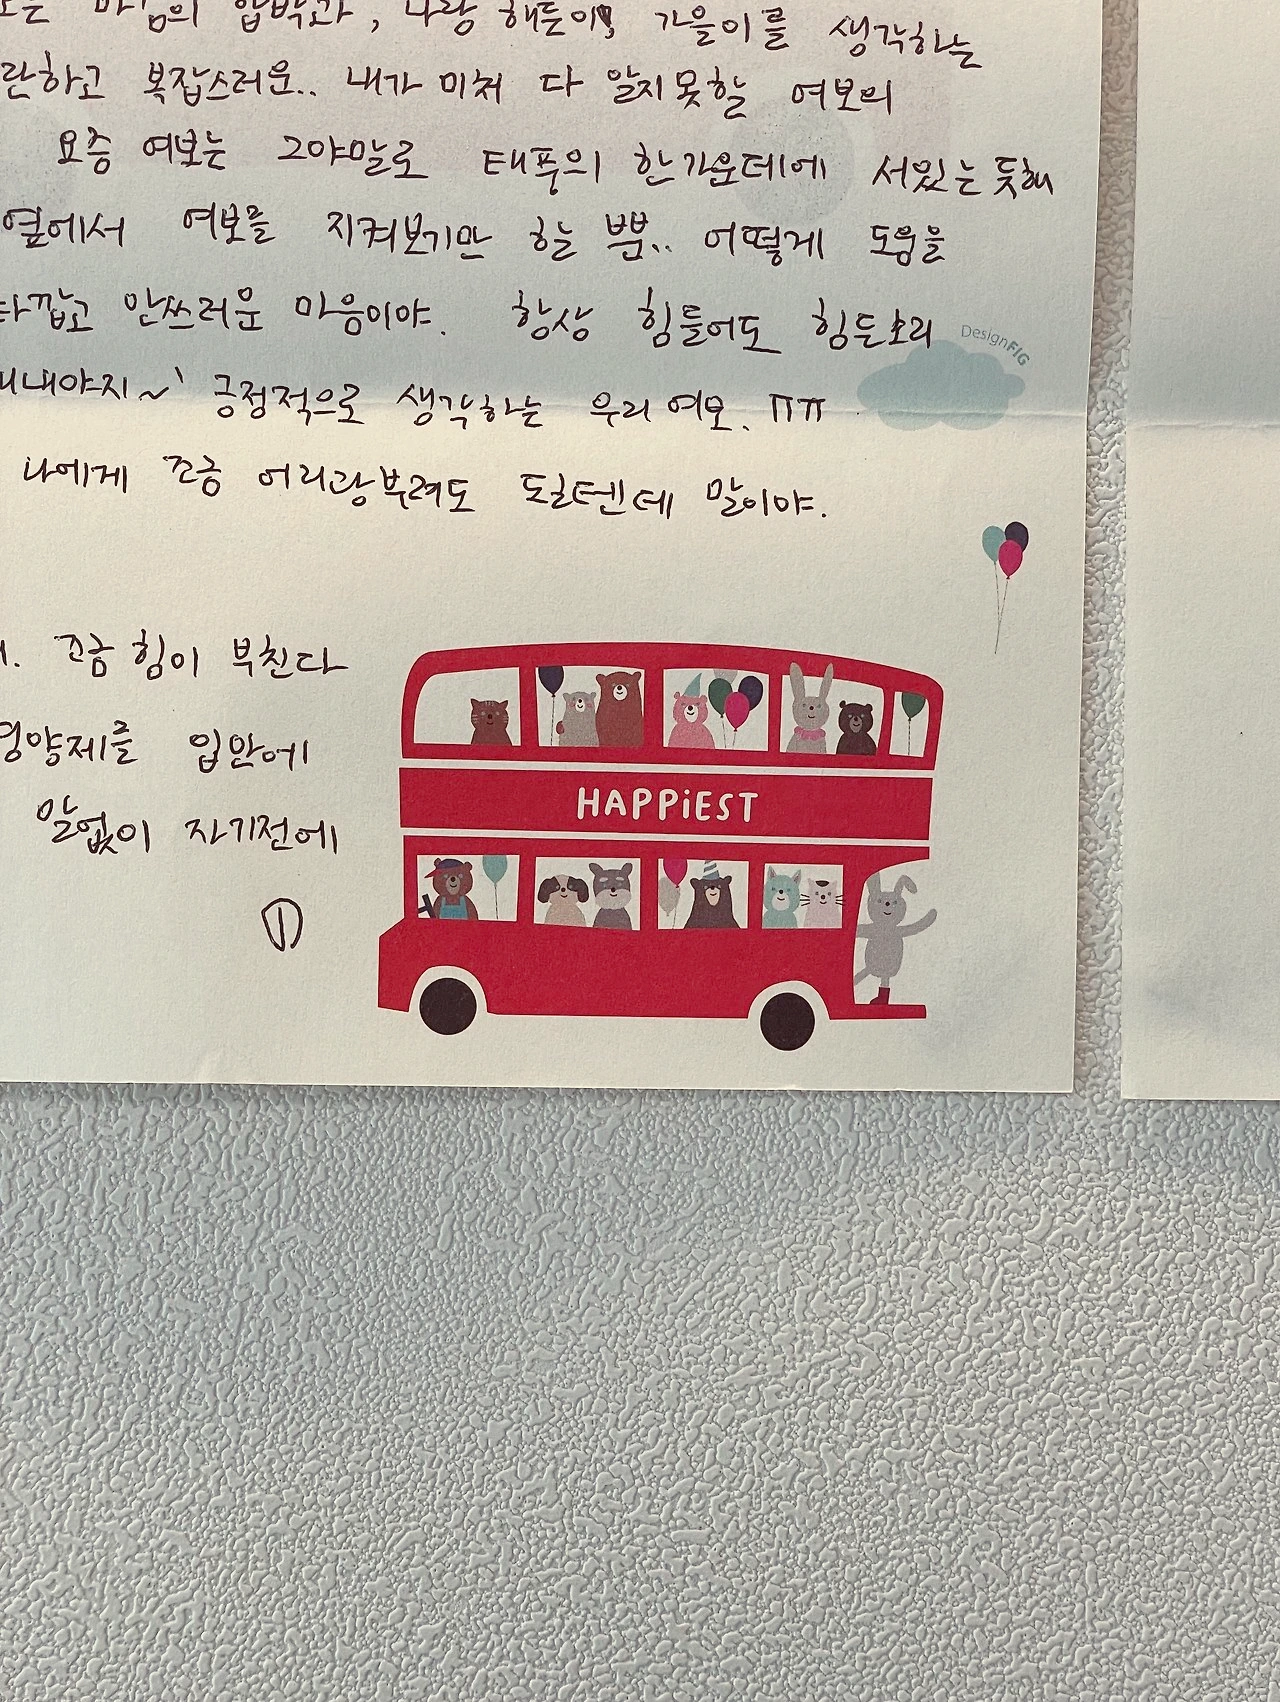 압박과, 나랑 해든이, 가을이를 생각하는
란하고 복잡스러운.. 내가 미처 다 알지못할 여보의
요즘 여보는 그야말로 태풍의 한가운데에 서있는 듯해
옆에서 여보를 지켜보기만 하는 뿐.. 어떻게 도움을
타깝고 안쓰러운 마음이야. 항상 힘들어도 힘든소리
DesignFIG
내야지~' 긍정적으로 생각하는 우리 여보. ㅠㅠ
나에게 조금 어리광부려도 될텐데 말이야.
조금 힘이 부친다
영양제를 입안에
HAPPiEST
말없이 자기전에
①